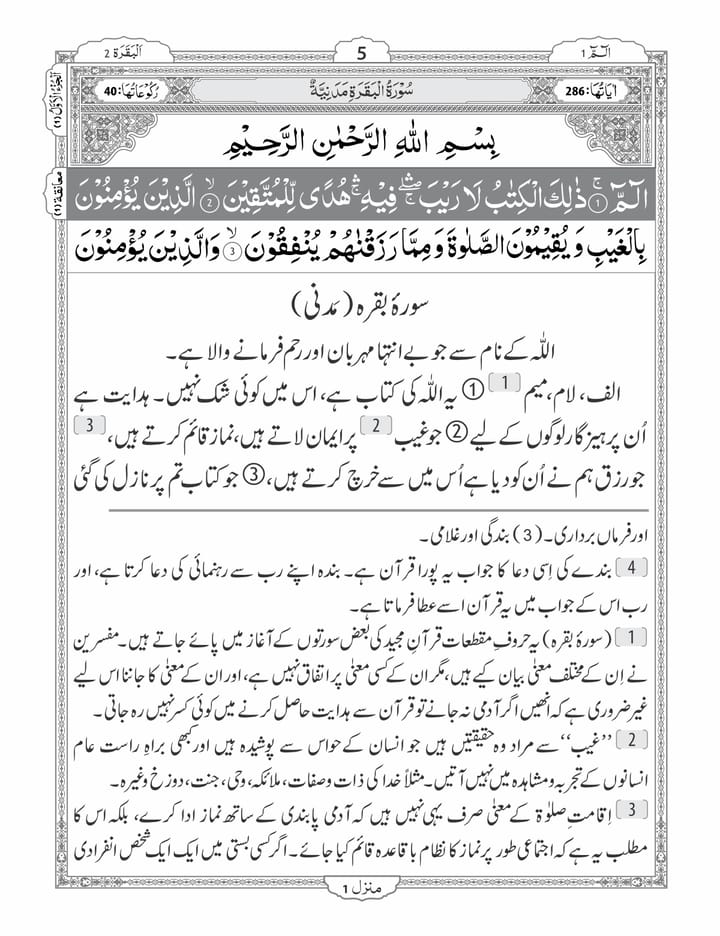 الٓمّٓ 1
5
اَلْبَقَرَة 2
اٰيَاتُهَا: 286
سُوْرَةُ الْبَقَرَةِ مَدَنِيَّةٌ
رُكُوْعَاتُهَا: 40
اَلْجُزْءُ الْاَوَّلُ (۱)
معانقة (۱)
بِسْمِ اللّٰهِ الرَّحْمٰنِ الرَّحِيْمِ
الٓمّٓ ۚ‏﴿1﴾ ذٰلِكَ الْكِتٰبُ لَا رَيْبَ ۛۖۚ فِيْهِ ۛۚ هُدًى لِّلْمُتَّقِيْنَ ۙ‏﴿2﴾ الَّذِيْنَ يُؤْمِنُوْنَ
بِالْغَيْبِ وَ يُقِيْمُوْنَ الصَّلٰوةَ وَ مِمَّا رَزَقْنٰهُمْ يُنْفِقُوْنَ ۙ‏﴿3﴾ وَالَّذِيْنَ يُؤْمِنُوْنَ
سورۂ بقرہ (مَدنی)
اللّٰہ کے نام سے جو بے انتہا مہربان اور رحم فرمانے والا ہے۔
الف، لام، میم [1] ① یہ اللّٰہ کی کتاب ہے، اس میں کوئی شک نہیں۔ ہدایت ہے
اُن پرہیزگار لوگوں کے لیے ② جو غیب [2] پر ایمان لاتے ہیں، نماز قائم کرتے ہیں، [3]
جو رزق ہم نے اُن کو دیا ہے اُس میں سے خرچ کرتے ہیں، ③ جو کتاب تم پر نازل کی گئی
اور فرماں برداری۔ (3) بندگی اور غلامی۔
[4] بندے کی اِسی دعا کا جواب یہ پورا قرآن ہے۔ بندہ اپنے رب سے رہنمائی کی دعا کرتا ہے، اور
رب اس کے جواب میں یہ قرآن اسے عطا فرماتا ہے۔
[1] (سورۂ بقرہ) یہ حروفِ مقطعات قرآنِ مجید کی بعض سورتوں کے آغاز میں پائے جاتے ہیں۔ مفسرین
نے اِن کے مختلف معنیٰ بیان کیے ہیں، مگر ان کے کسی معنیٰ پر اتفاق نہیں ہے، اور ان کے معنیٰ کا جاننا اس لیے
غیر ضروری ہے کہ انھیں اگر آدمی نہ جانے تو قرآن سے ہدایت حاصل کرنے میں کوئی کسر نہیں رہ جاتی۔
[2] ’’غیب‘‘ سے مراد وہ حقیقتیں ہیں جو انسان کے حواس سے پوشیدہ ہیں اور کبھی براہِ راست عام
انسانوں کے تجربہ و مشاہدہ میں نہیں آتیں۔ مثلاً خدا کی ذات وصفات، ملائکہ، وحی، جنت، دوزخ وغیرہ۔
[3] اِقامتِ صلوٰۃ کے معنیٰ صرف یہی نہیں ہیں کہ آدمی پابندی کے ساتھ نماز ادا کرے، بلکہ اس کا
مطلب یہ ہے کہ اجتماعی طور پر نماز کا نظام باقاعدہ قائم کیا جائے۔ اگر کسی بستی میں ایک ایک شخص انفرادی
منزل 1